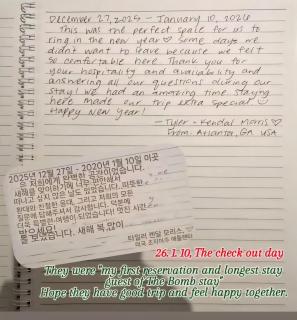 December 27, 2025 – January 10, 2026
This was the perfect space for us to
ring in the new year ♡ Some days we
didn't want to leave because we felt
so comfortable here. Thank you for
your hospitality and availability and
answering all our questions during our
stay! We had an amazing time. Staying
here made our trip extra special ☺
Happy New Year!
– Tyler + Kendal Morris ♡
From: Atlanta, GA USA
2025년 12월 27일 - 2020년 1월 10일 이곳
은 저희에게 완벽한 공간이었습니다.
새해를 맞이하기에 너무 편해서
떠나고 싶지 않은 날도 있었습니다. 따뜻한
환대와 친절한 응대, 그리고 저희의 모든
질문에 답해주셔서 감사합니다. 덕분에
더욱 특별한 여행이 되었습니다! 멋진 시간
을 보냈습니다. 새해 복 많이
받으세요!
타일러 켄달 모리스
미국 조지아주 애틀랜타
26.1.10, The check out day
They were "my first reservation and longest stay
guest of The Bomb stay"
Hope they have good trip and feel happy together.